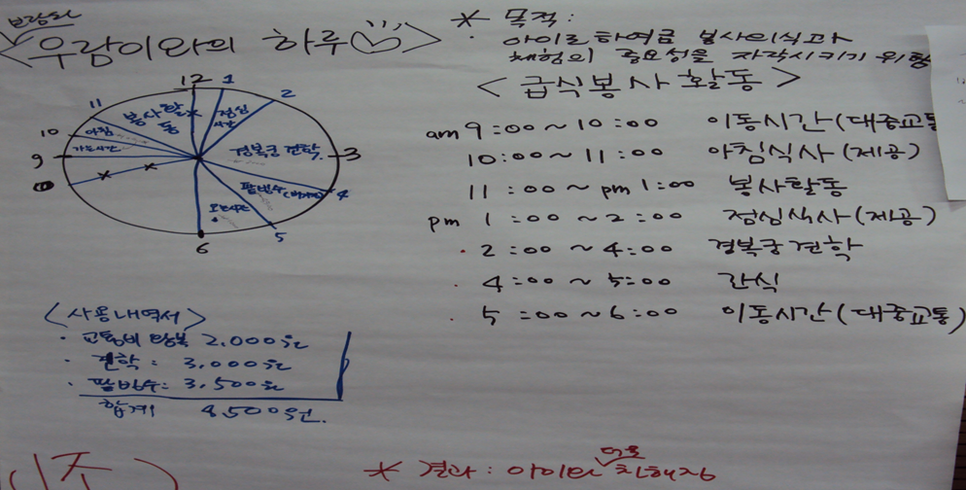 보람찬
<우람이와의 하루♡>
* 목적:
아이로 하여금 봉사의식과
체험의 중요성을 자각시키기 위함
<급식봉사활동>
12
1
2
3
4
5
6
9
10
11
봉사활동
점심시간
경복궁 견학
팥빙수
오는시간
아침
가는시간
am 9:00 ~ 10:00 이동시간(대중교통
10:00 ~ 11:00 아침식사(제공)
11:00 ~ pm 1:00 봉사활동
pm 1:00 ~ 2:00 점심식사(제공)
· 2:00 ~ 4:00 경복궁견학
· 4:00 ~ 5:00 간식
· 5:00 ~ 6:00 이동시간(대중교통)
<사용내역서>
· 교통비 왕복 2,000원
· 견학: 3,000원
· 팥빙수: 3,500원
합계 8,500원.
조)
더욱
* 결과: 아이와 친해짐